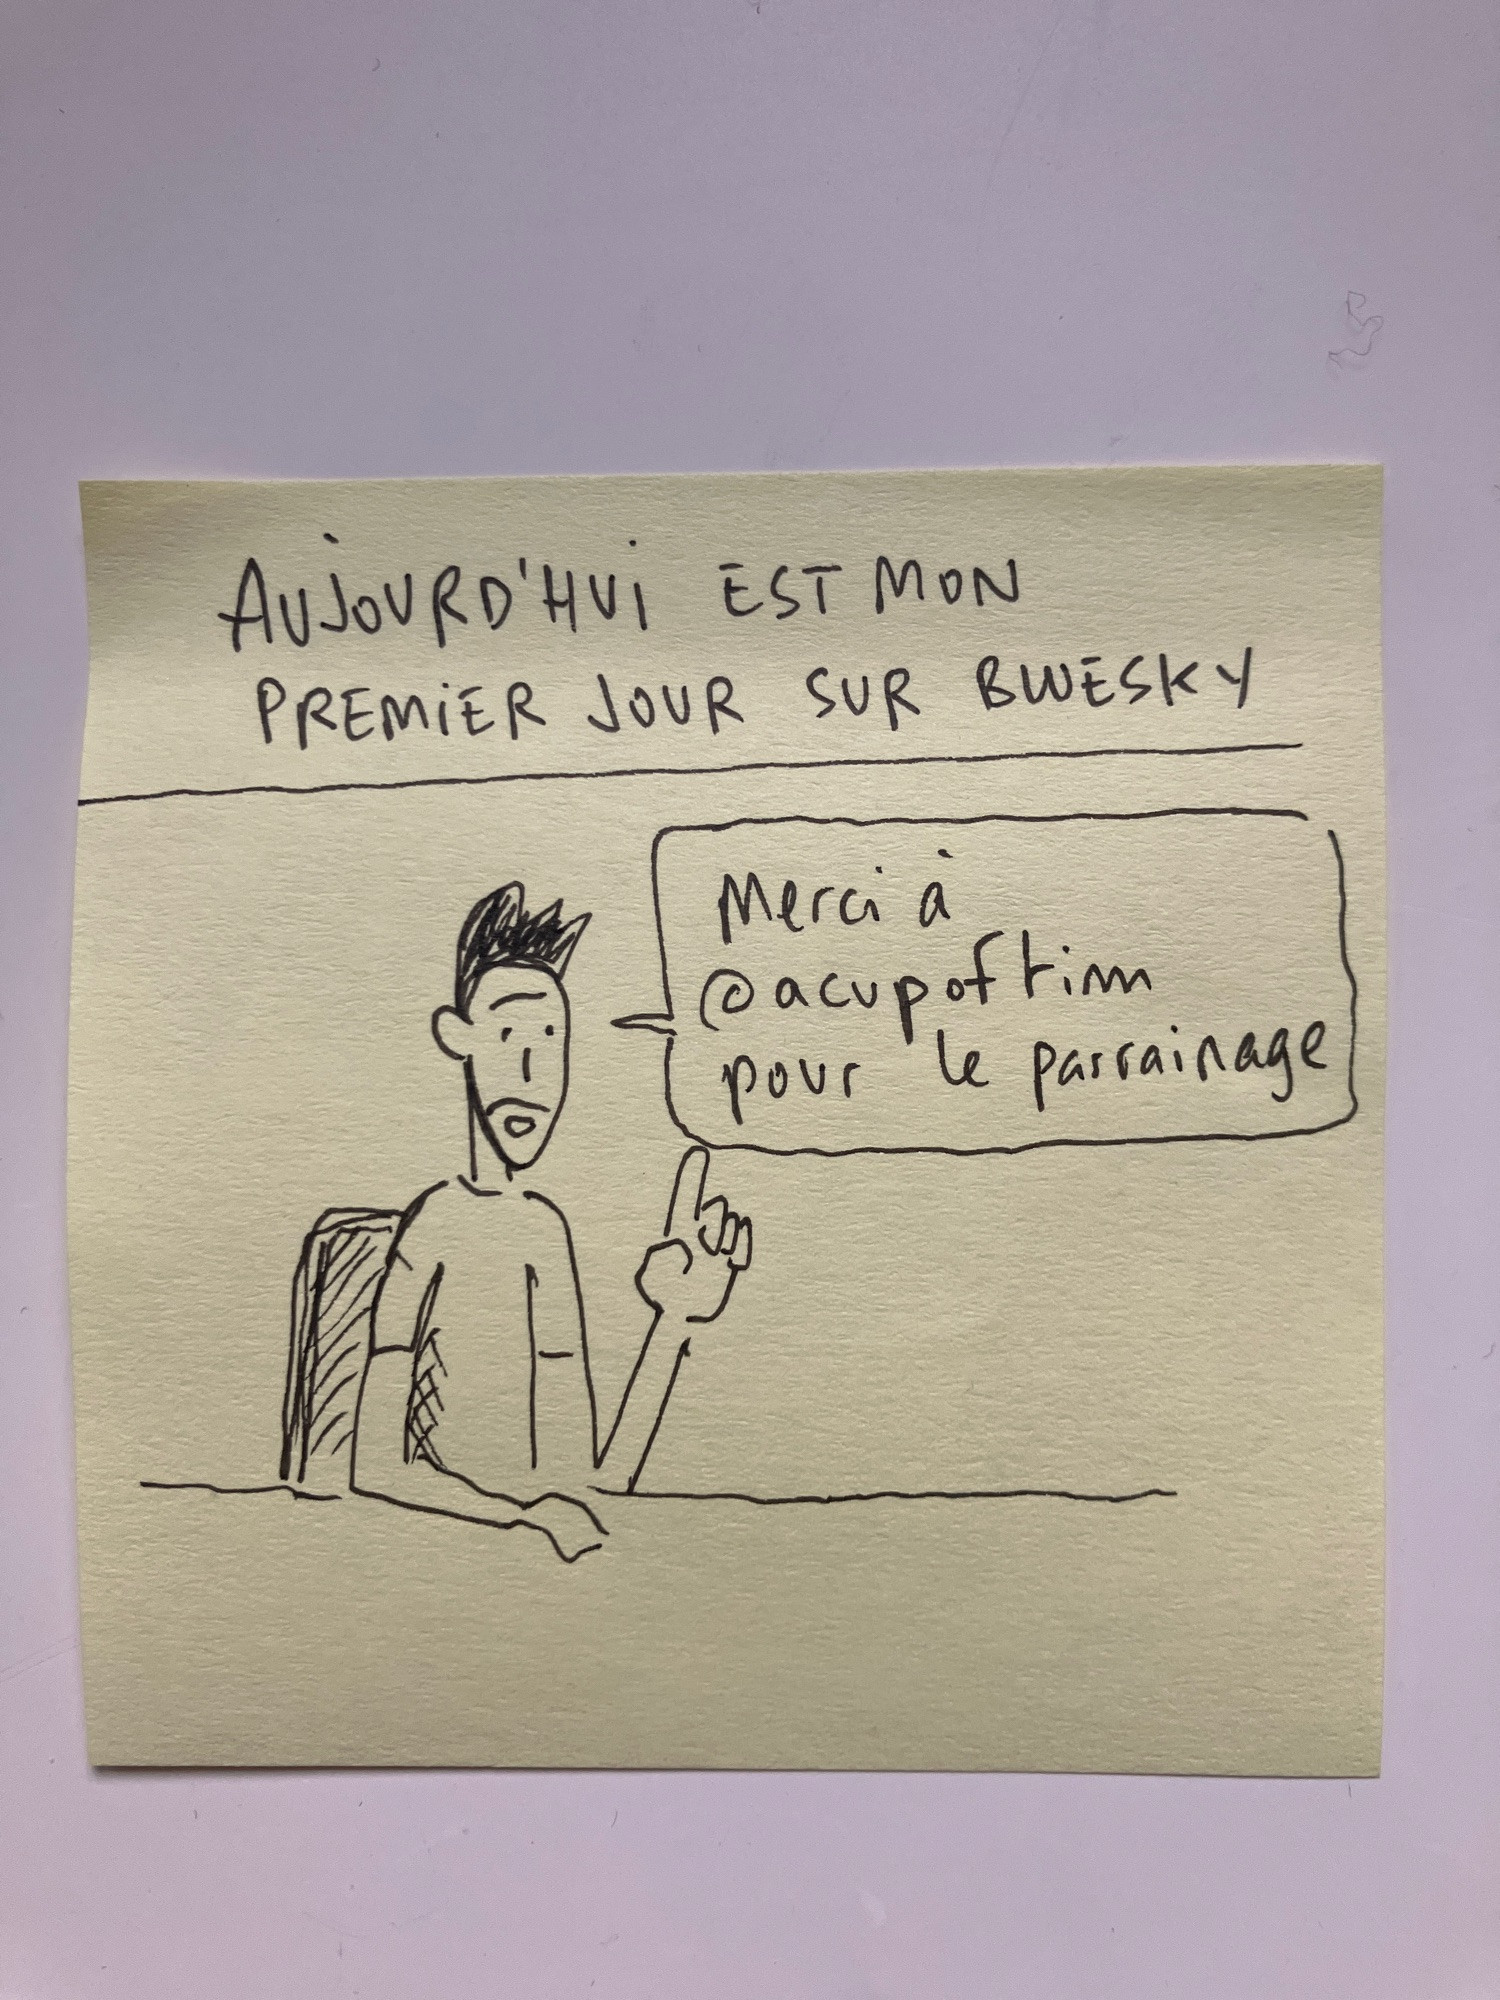 AUJOURD'HUI EST MON
PREMIER JOUR SUR BLUESKY
Merci à
@acupoftim
pour le parrainage